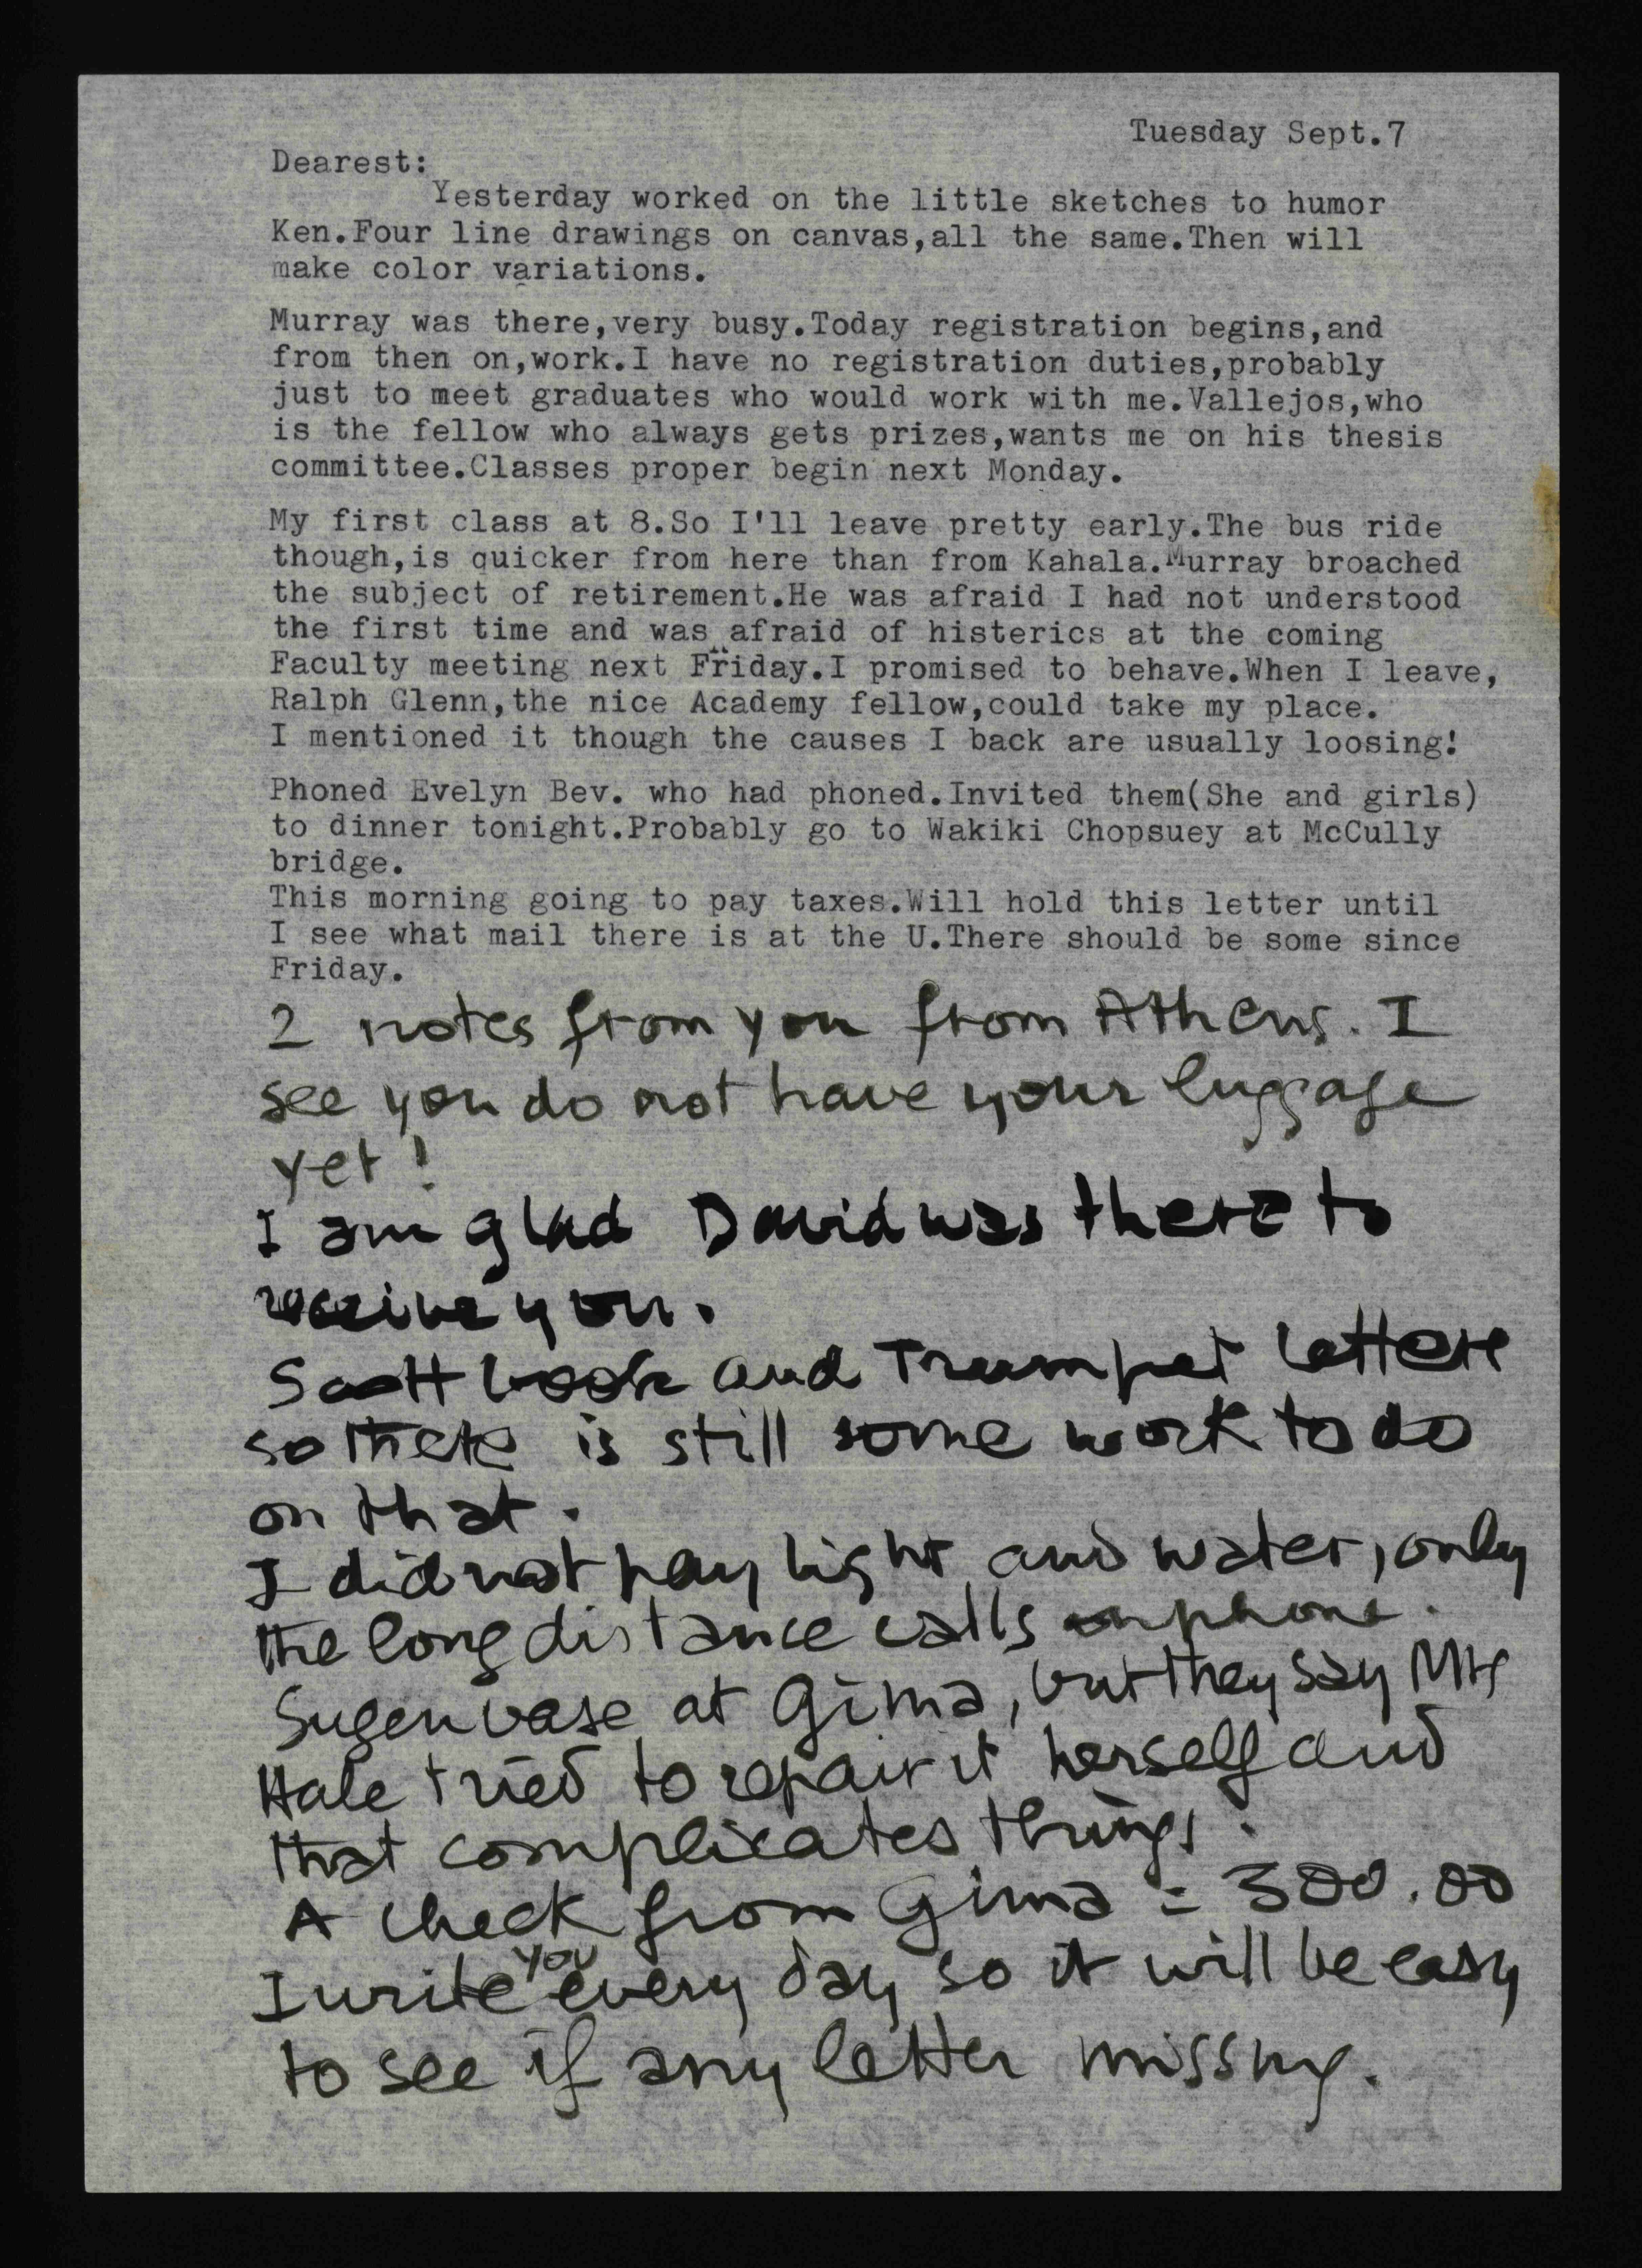 Tuesday Sept.7
Dearest:
Yesterday worked on the little sketches to humor
Ken.Four line drawings on canvas,all the same.Then will
make color variations.
Murray was there,very busy.Today registration begins,and
from then on,work.I have no registration duties,probably
just to meet graduates who would work with me.Vallejos,who
is the fellow who always gets prizes,wants me on his thesis
committee.Classes proper begin next Monday.
My first class at 8.So I'll leave pretty early.The bus ride
though,is quicker from here than from Kahala.Murray broached
the subject of retirement.He was afraid I had not understood
the first time and was afraid of histerics at the coming
Faculty meeting next Friday.I promised to behave.When I leave,
Ralph Glenn,the nice Academy fellow,could take my place.
I mentioned it though the causes I back are usually loosing!
Phoned Evelyn Bev. who had phoned.Invited them(She and girls)
to dinner tonight.Probably go to Wakiki Chopsuey at McCully
bridge.
This morning going to pay taxes.Will hold this letter until
I see what mail there is at the U.There should be some since
Friday.
2 notes from you from Athens. I
see you do not have your luggage
yet!
I am glad David was there to
receive you.
Scott book and Trumpet letter
so there is still some work to do
on that.
I did not pay light and water, only
the long distance calls on phone.
Sugen vase at Gima, but they say Mrs
Hale tried to repair it herself and
that complicates things.
A check from Gima = 300.00
I write you every day so it will be easy
to see if any letter missing.